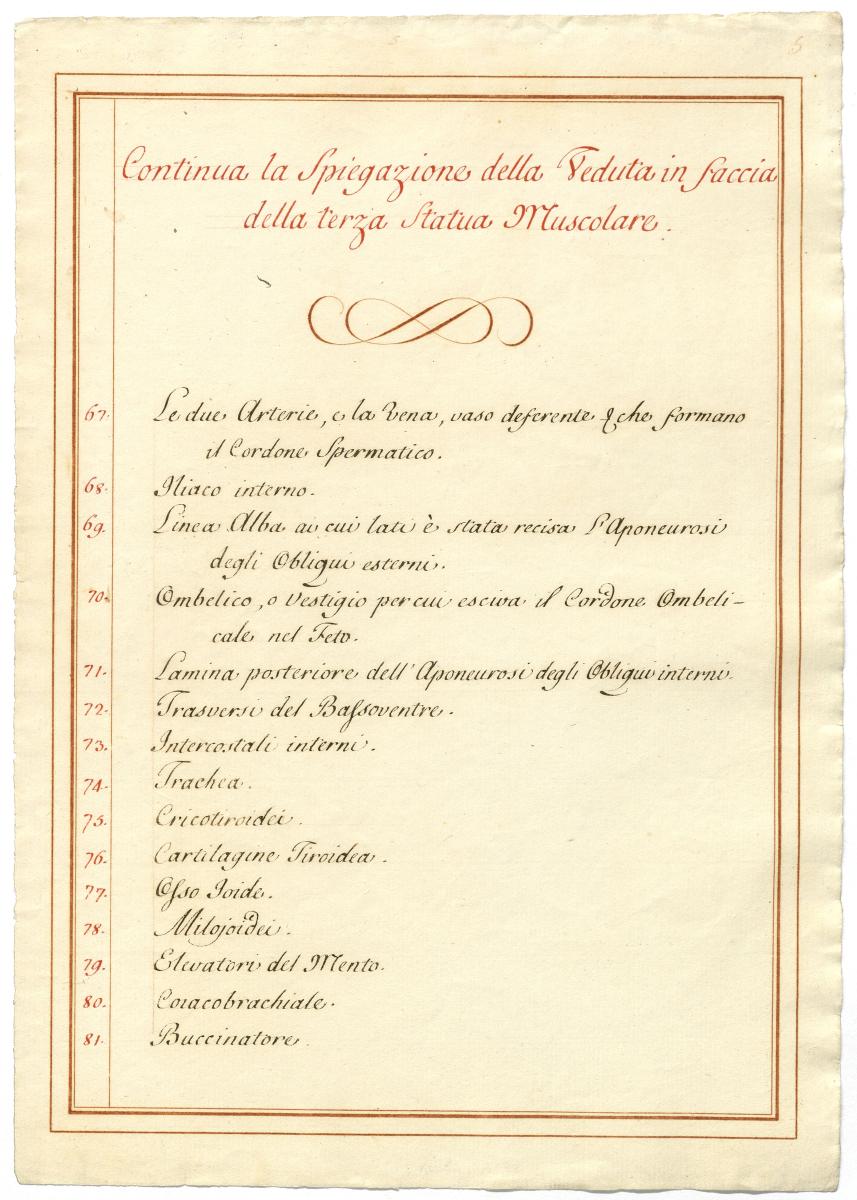 5
Continua la Spiegazione della Veduta in faccia
della terza Statua Muscolare.
67. Le due Arterie, e la Vena, vaso deferente che formano
il Cordone Spermatico.
68. Iliaco interno.
69. Linea Alba ai cui lati è stata recisa l'Aponeurosi
degli Obliqui esterni.
70. Ombelico, o Vestigio per cui esciva il Cordone Ombeli-
cale nel Feto.
71. Lamina posteriore dell'Aponeurosi degli Obliqui interni.
72. Trasversi del Bassoventre.
73. Intercostali interni.
74. Trachea.
75. Cricotiroidei.
76. Cartilagine Tiroidea.
77. Osso Joide.
78. Milojoidei.
79. Elevatori del Mento.
80. Coracobrachiale.
81. Buccinatore.